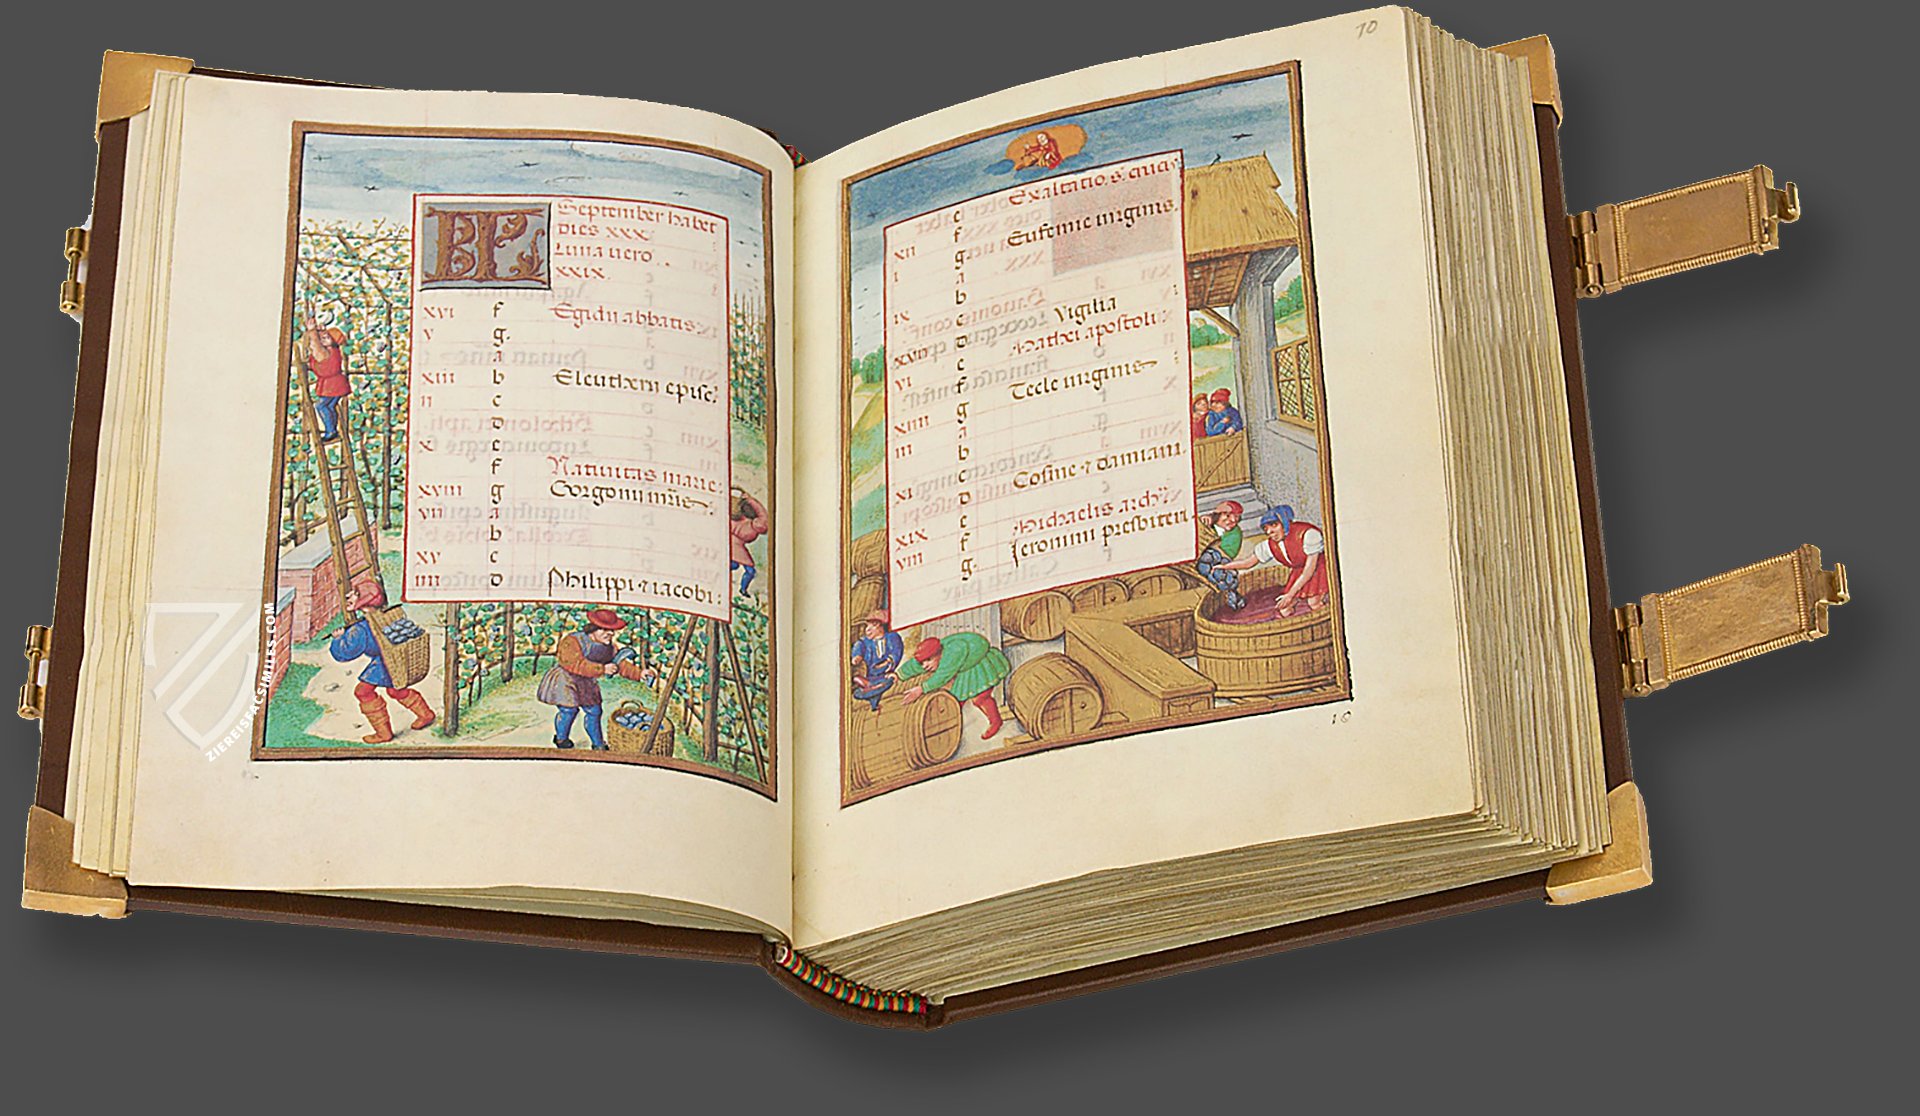 KL
September habet
dies xxx
Luna vero
xxix.
xvi f Egidii abbatis
v g
a
xiii b Eleutherii episc
ii c
d
x e
f Nativitas marie
xviii g Gorgonii
vii a
b
xv c
iiii d Philippi et iacobi
10
e Exaltatio s. cruc
xii f Eufemie virginis.
i g
a
b
ix c Vigilia
d Mathei apostoli
xvii e
vi f Tecle virginis
g
xiiii a
iii b
c Cosme et damiani
xi d
e Michaelis arch
xix f Jeronimi presbiteri
viii g
10
ZIEREISFACSIMILES.COM